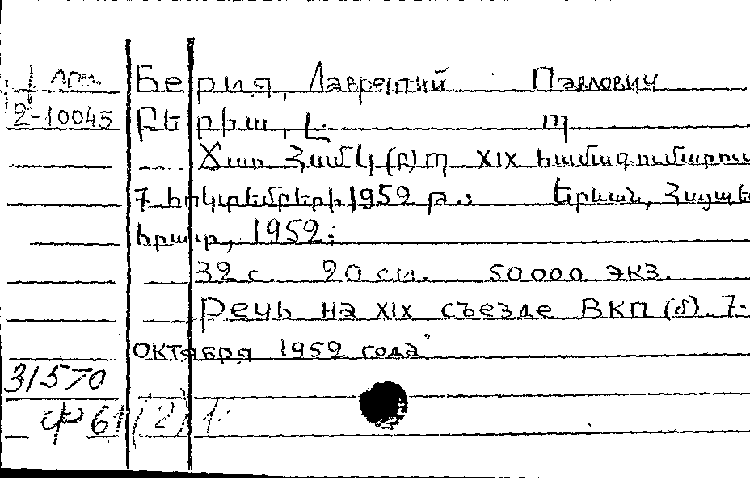 Берия, Лаврентий Павлович
2-10045 Բերիա, Լ. Պ
Ճառ Համկ(բ)պ XIX համագումարում
7 հոկտեմբերի 1952 թ.: Երևան, Հայպետ
հրատ, 1952:
32 с. 20 см. 50000 экз.
Речь на XIX съезде ВКП(б). 7-
октября 1952 года
31570
Ф 61(2)1